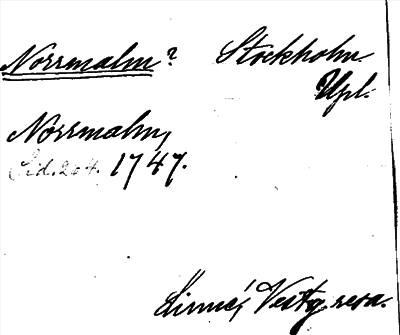 Norrmalm? Stockholm.
Upl.
Norrmalm,
Sid. 264. 1747.
Linné, Vestg. resa.